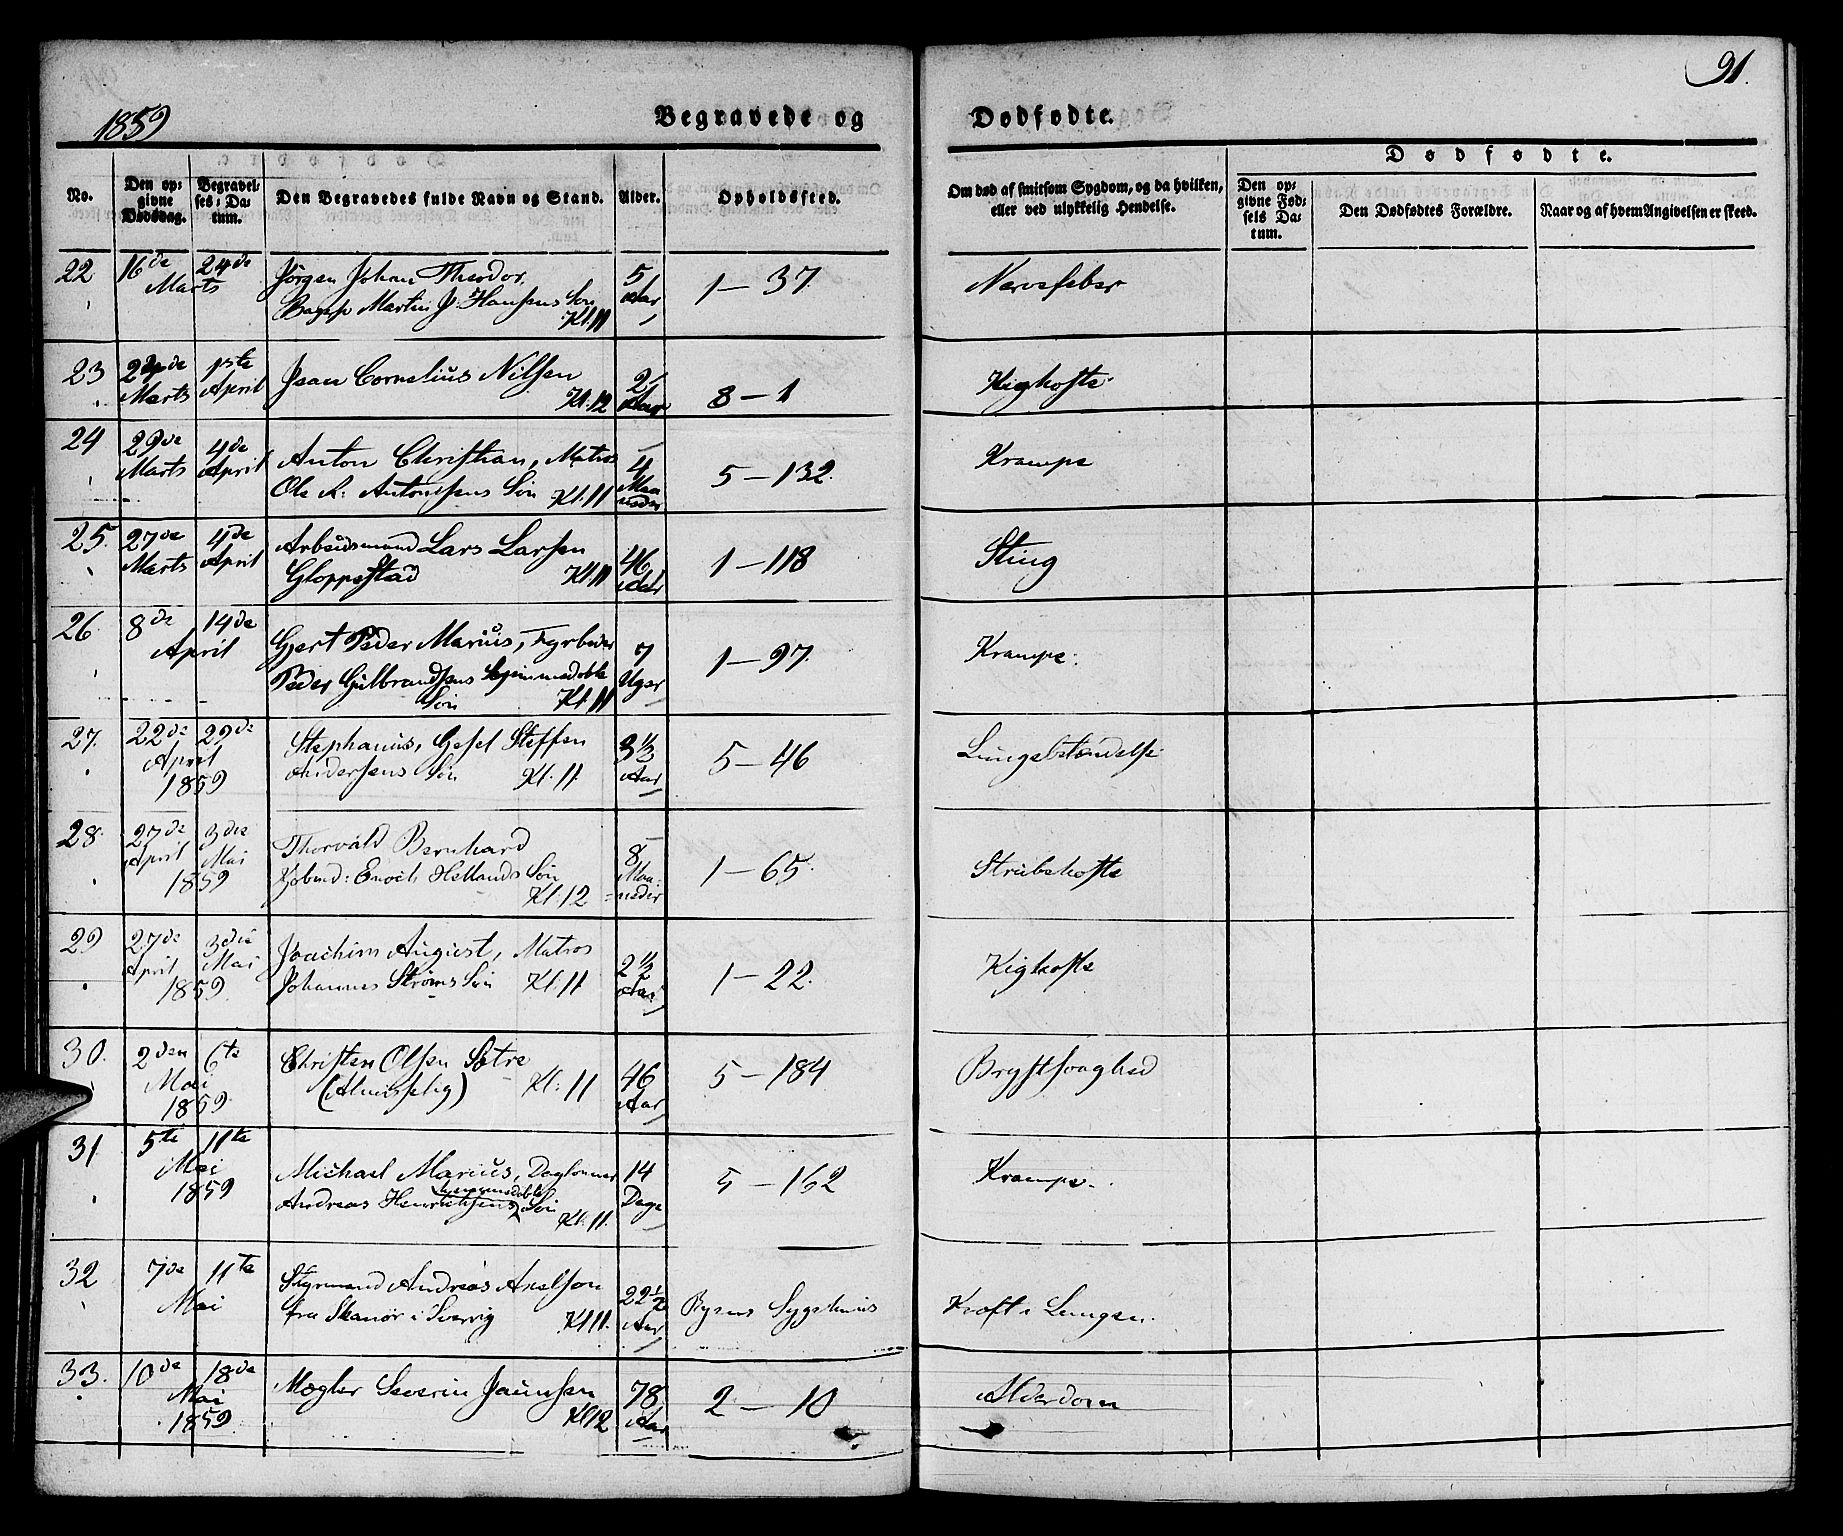 91.
1859
Begravede og Dødfødte.
Dødfødte.
No.
Den opgivne Dødsdag.
Begravelses-Datum.
Den Begravedes fulde Navn og Stand.
Alder.
Opholdssted.
Om død af smitsom Sygdom, og da hvilken, eller ved ulykkelig Hendelse.
Den opgivne Fødsels Datum.
Den Dødfødtes Forældre.
Naar og af hvem Angivelsen er skeed.
22 16de 24de Marts Jørgen Johan Theodor, 5 Aar 1 – 37 Nervefeber
Martin J. Hansens Søn Kl. 11
23 24de Marts 1ste April Jean Cornelius Nilsen 2 Aar 8 – 1 Kighoste
Kl. 12
24 29de Marts 4de April Anton Christian, Matros 4 Maaneder 5 – 132. Krampe
Ole A. Antonsens Søn Kl. 11
25. 27de Marts 4de April Arbeidsmand Lars Larsen 46 Aar 1 – 118 Sting
Gloppestad Kl 11
26. 8de 14de April Gjert Peder Marius, Fyrbøder 7 Uger 1 – 97. Krampe.
Peder Gulbrandsens hjemmedøbte
Søn Kl. 11
27. 22de 29de April 1859 Stephanus, Gesel Steffen 3 1/2 Aar 5 – 46 Lungebetændelse
Andersens Søn Kl. 11.
28. 27de April 3die Mai 1859 Thorvald Bernhard 8 Maaneder 1 – 65. Strubehoste
Kjøbmd: Enoch Hellands Søn
Kl. 12
29 27de April 3die Mai 1859. Joachim August, Matros 2 1/2 Aar 1 – 22. Kighoste
Johannes Strøms Søn Kl. 11
30. 2den 6te Mai 1859. Christen Olsen Sætre 46 Aar 5 – 184 Brystsvaghed
(Almisselig) Kl: 11
31. 5te 11te Mai 1859 Michael Marius, Daglønner 14 Dage 5 – 162 Krampe.
hjemmedøbte
Andreas Henrichsens Søn
Kl. 11.
32 7de 11te Mai Styrmand Andreas Axelson 22 1/2 Aar Byens Sygehuus Kræft i Lungen.
fra Skanør i Sverrig Kl 11.
33. 10de 18de Mai 1859. Mægler Severin Jaunsen 78 Aar 2 – 10 Alderdom
Kl 12